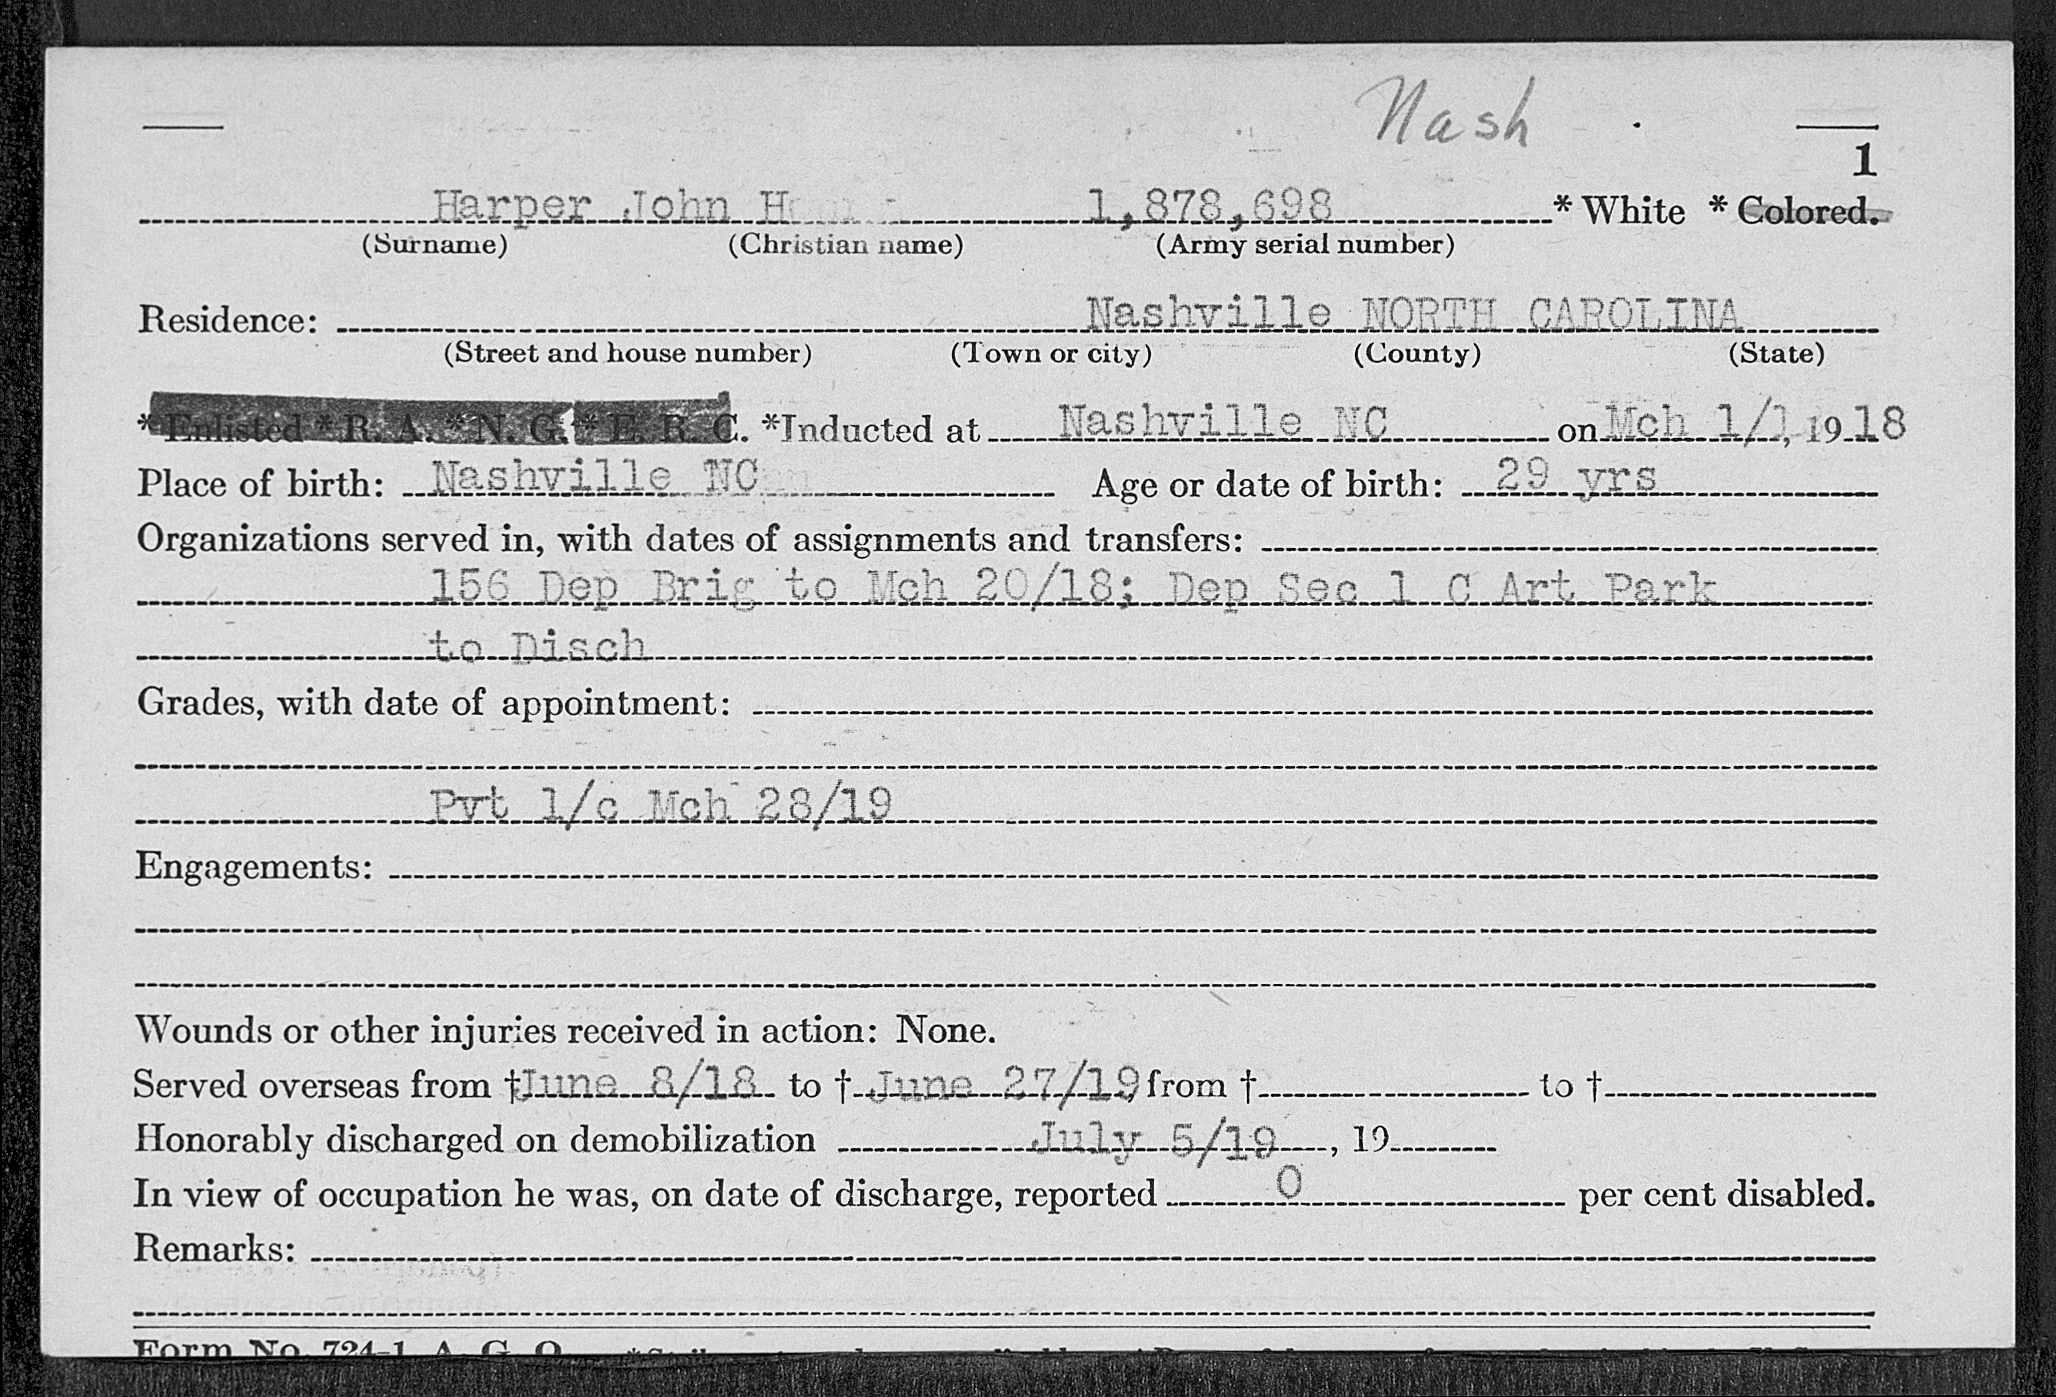 Nash
1
Harper John H 1,878,698 * White * Colored.
(Surname) (Christian name) (Army serial number)
Residence: Nashville NORTH CAROLINA
(Street and house number) (Town or city) (County) (State)
* Enlisted * R. A. * N. G. * E. R. C. *Inducted at Nashville NC on Mch 1/1, 19 18
Place of birth: Nashville NC Age or date of birth: 29 yrs
Organizations served in, with dates of assignments and transfers:
156 Dep Brig to Mch 20/18; Dep Sec 1 C Art Park
to Disch
Grades, with date of appointment:
Pvt 1/c Mch 28/19
Engagements:
Wounds or other injuries received in action: None.
Served overseas from † June 8/18 to † June 27/19 from † to †
Honorably discharged on demobilization July 5/19, 19
In view of occupation he was, on date of discharge, reported 0 per cent disabled.
Remarks:
Form No. 724-1 A. G. O.